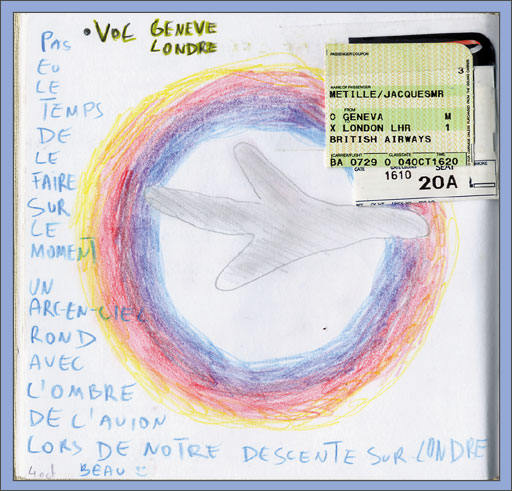 • VOL GENEVE
LONDRE
PAS
EU
LE
TEMPS
DE
LE
FAIRE
SUR
LE
MOMENT
UN
ARC-EN-CIEL
ROND
AVEC
L'OMBRE
DE L'AVION
LORS DE NOTRE DESCENTE SUR LONDRE
4 oct BEAU ☺
PASSENGER COUPON
3
NAME OF PASSENGER
METILLE/JACQUESMR
FROM
O GENEVA M
X LONDON LHR 1
BRITISH AIRWAYS
CARRIER/FLIGHT CLASS/DATE TIME
BA 0729 O 04OCT1620
GATE SEAT SMOKE
1610 20A